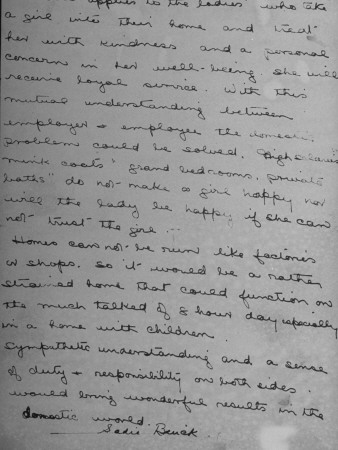 applies to the ladies who take
a girl into their home and treat
her with kindness and a personal
concern in her well-being she will
receive loyal service. With this
mutual understanding between
employer & employee the domestic
problem could be solved. High
"mink coats" grand bedrooms, private
baths" do not make a girl happy nor
will the lady be happy if she can
not trust the girl. -
Homes can not be run like factories
or shops. So it would be a rather
strained home that could function on
the much talked of 8 hour day especially
in a home with children.
Sympathetic understanding and a sense
of duty & responsibility on both sides.
would bring wonderful results in the
domestic world.
Sadie